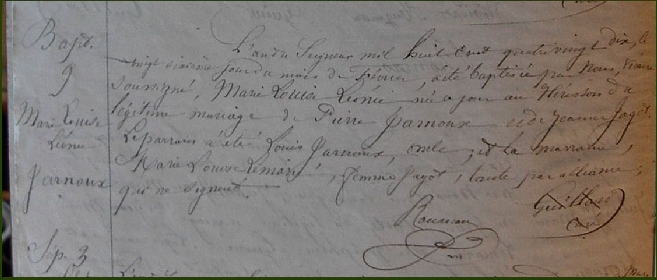 Bapt.
9
Marie Louise
Léonie
Jarnoux
L'an du Seigneur mil huit cent quatre vingt dix, le
vingt sixième jour du mois de Février, a été baptisée par Nous, Vicaire
soussigné, Marie Louise Léonie née a jour au Hérisson du
légitime mariage de Pierre Jarnoux et de Jeanne Jagot.
Le parrain a été Louis Jarnoux, oncle, et la marraine,
Marie Louise, femme Jagot, tante par alliance,
qui ne signent
Rousseau
Guillard
Curé
Sép. 3